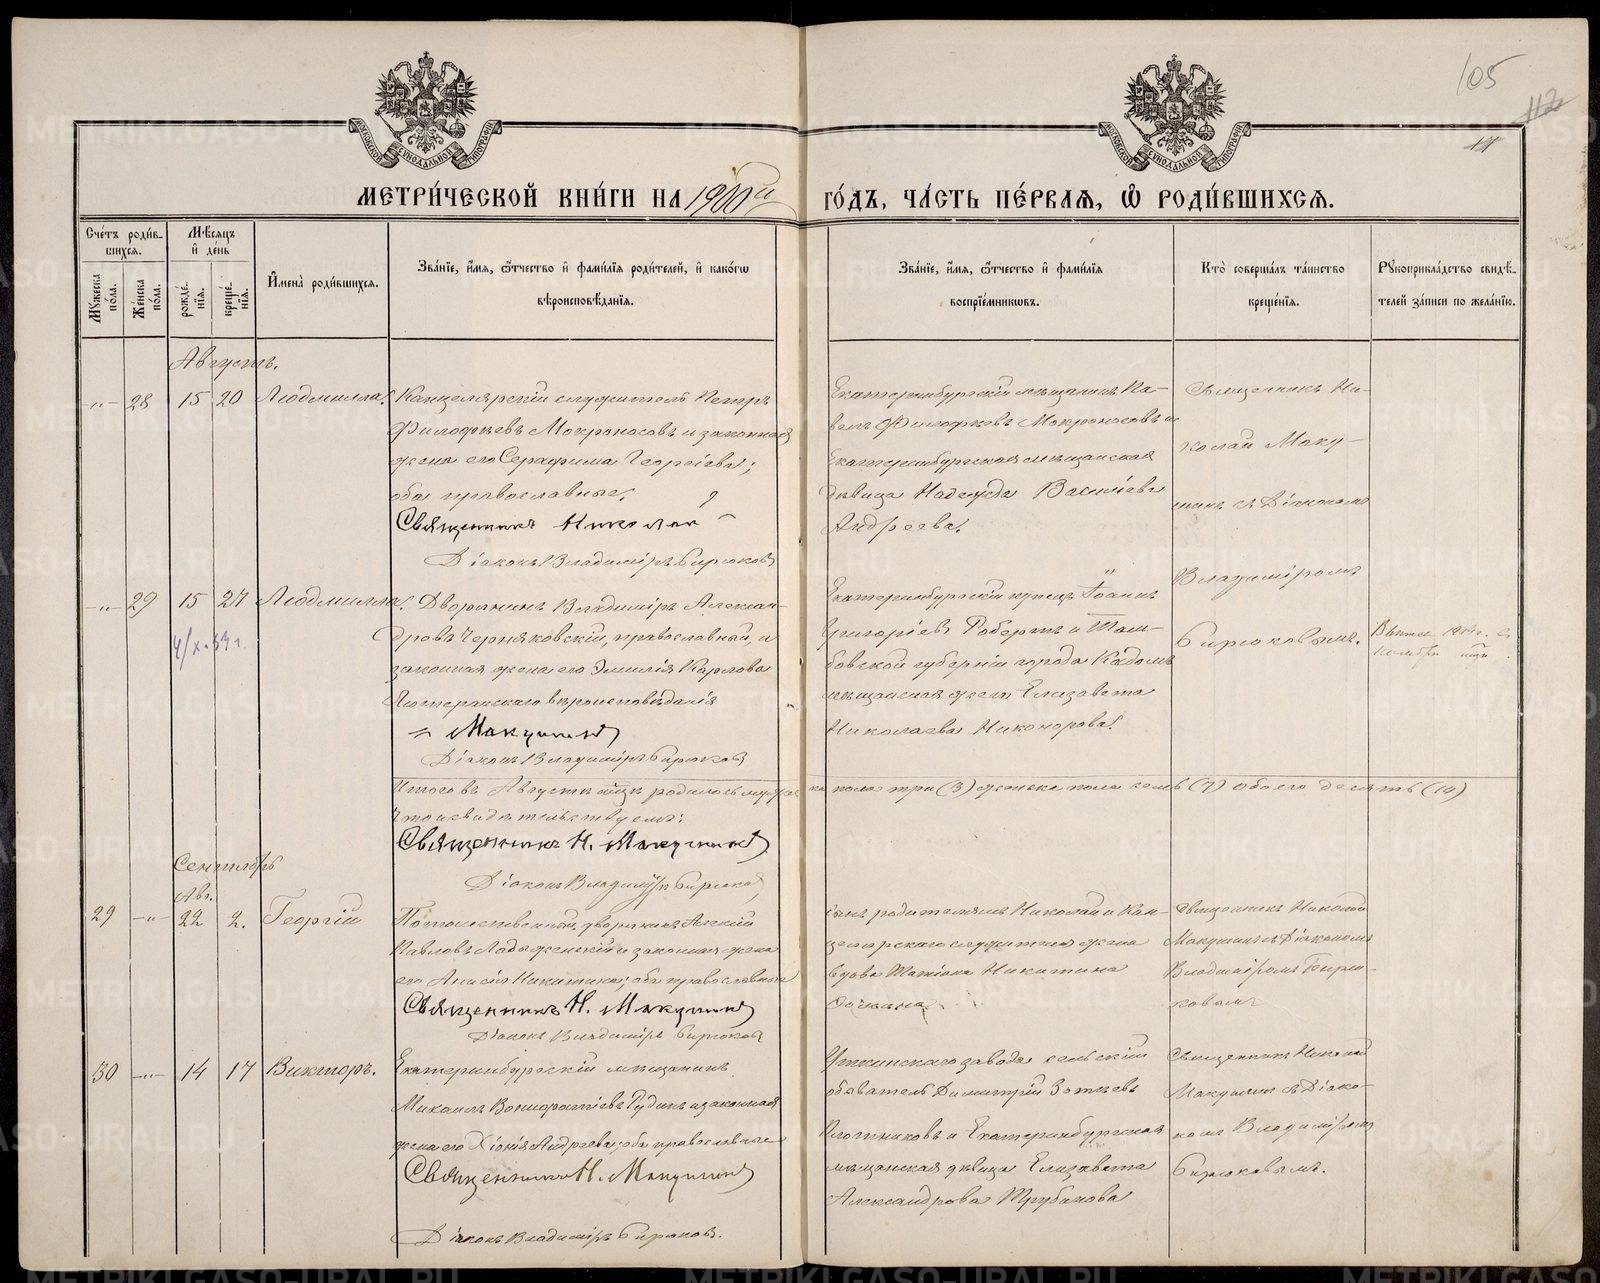 105
112
МЕТРИ́ЧЕСКОЙ КНИ́ГИ НА 1900й ГО́ДЪ, ЧА́СТЬ ПЕ́РВАЯ, Ѽ РОДИ́ВШИХСЯ.
Сче́тъ роди́вшихся.
Мꙋжеска по́ла.
Же́нска по́ла.
Мѣсяцъ и де́нь
рожде́нїя.
креще́нїя.
Имена̀ роди́вшихся.
Зва́нїе, имя, ѻтчество и фами́лїя роди́телей, и какогѡ
вѣроисповѣданїя.
Зва́нїе, имя, ѻтчество и фами́лїя
воспрїе́мникѡвъ.
Кто̀ соверша́лъ та́инство
креще́нїя.
Рꙋкоприкла́дство свидѣ-
телей за́писи по жела́нїю.
Августъ.
-„- 28 15 20 Людмилла.
Канцелярскій служитель Петръ
Филофѣевъ Мокроносовъ и законная
жена его Серафима Георгіева;
оба православные.
Священникъ Николай
Діаконъ Владиміръ Бирюковъ
Екатеринбургскій мѣщанинъ Па-
велъ Филофѣевъ Мокроносовъ и
Екатеринбургская мѣщанская
дѣвица Надежда Васильева
Андреева.
Священникъ Ни-
колай Маку-
шинъ съ Діакономъ
Владиміромъ
Бирюковымъ.
-„- 29 15 27 Людмилла.
4/X-33 г.
Дворянинъ Владиміръ Алексан-
дровъ Черняковскій, православный, и
законная жена его Эмилія Карлова
Лютеранскаго вѣроисповѣданія
Макушинъ
Діаконъ Владиміръ Бирюковъ
Екатеринбургскій купецъ Іоаннъ
Григоріевъ Робертъ и Там-
бовской губерніи города Кадома
мѣщанская жена Елизавета
Николаева Никонорова.
Итого въ Августѣ м-цѣ родилось мужеска пола три (3) женска пола семь (7) обоего десять (10)
Что и свидѣтельствуемъ:
Священникъ Н. Макушинъ
Діаконъ Владиміръ Бирюковъ
Сентябрь
Авг.
29 -„- 22 2. Георгій
Потомственный дворянинъ Алексій
Павловъ Ладыженскій и законная жена
его Анисія Никитина; оба православные
Священникъ Н. Макушинъ
Діаконъ Владиміръ Бирюковъ
сынъ родителямъ Николай и Кан-
целярскаго служителя жена
вдова Татіана Никитина
Священникъ Николай
Макушинъ съ Діакономъ
Владиміромъ Бирю-
ковымъ
30 -„- 14 17 Викторъ.
Екатеринбургскій мѣщанинъ
Михаилъ Вонифатіевъ Рудинъ и законная
жена его Хіонія Андреева; оба православные
Священникъ Н. Макушинъ
Діаконъ Владиміръ Бирюковъ.
Уткинскаго завода сельскій
обыватель Димитрій Зотѣевъ
Плотниковъ и Екатеринбургская
мѣщанская дѣвица Елизавета
Александрова Трубакова
Священникъ Николай
Макушинъ съ Діако-
номъ Владиміромъ
Бирюковымъ.